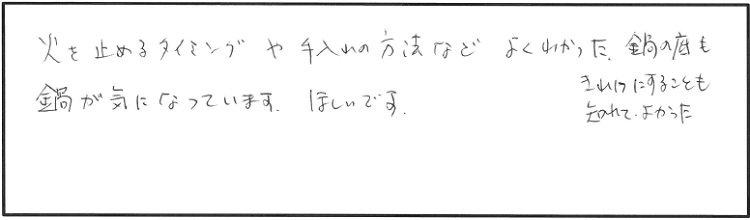 火を止めるタイミングや手入れの方法などよくわかった、鍋の底も
きれいにすることも
知れてよかった
鍋が気になっています。ほしいです。